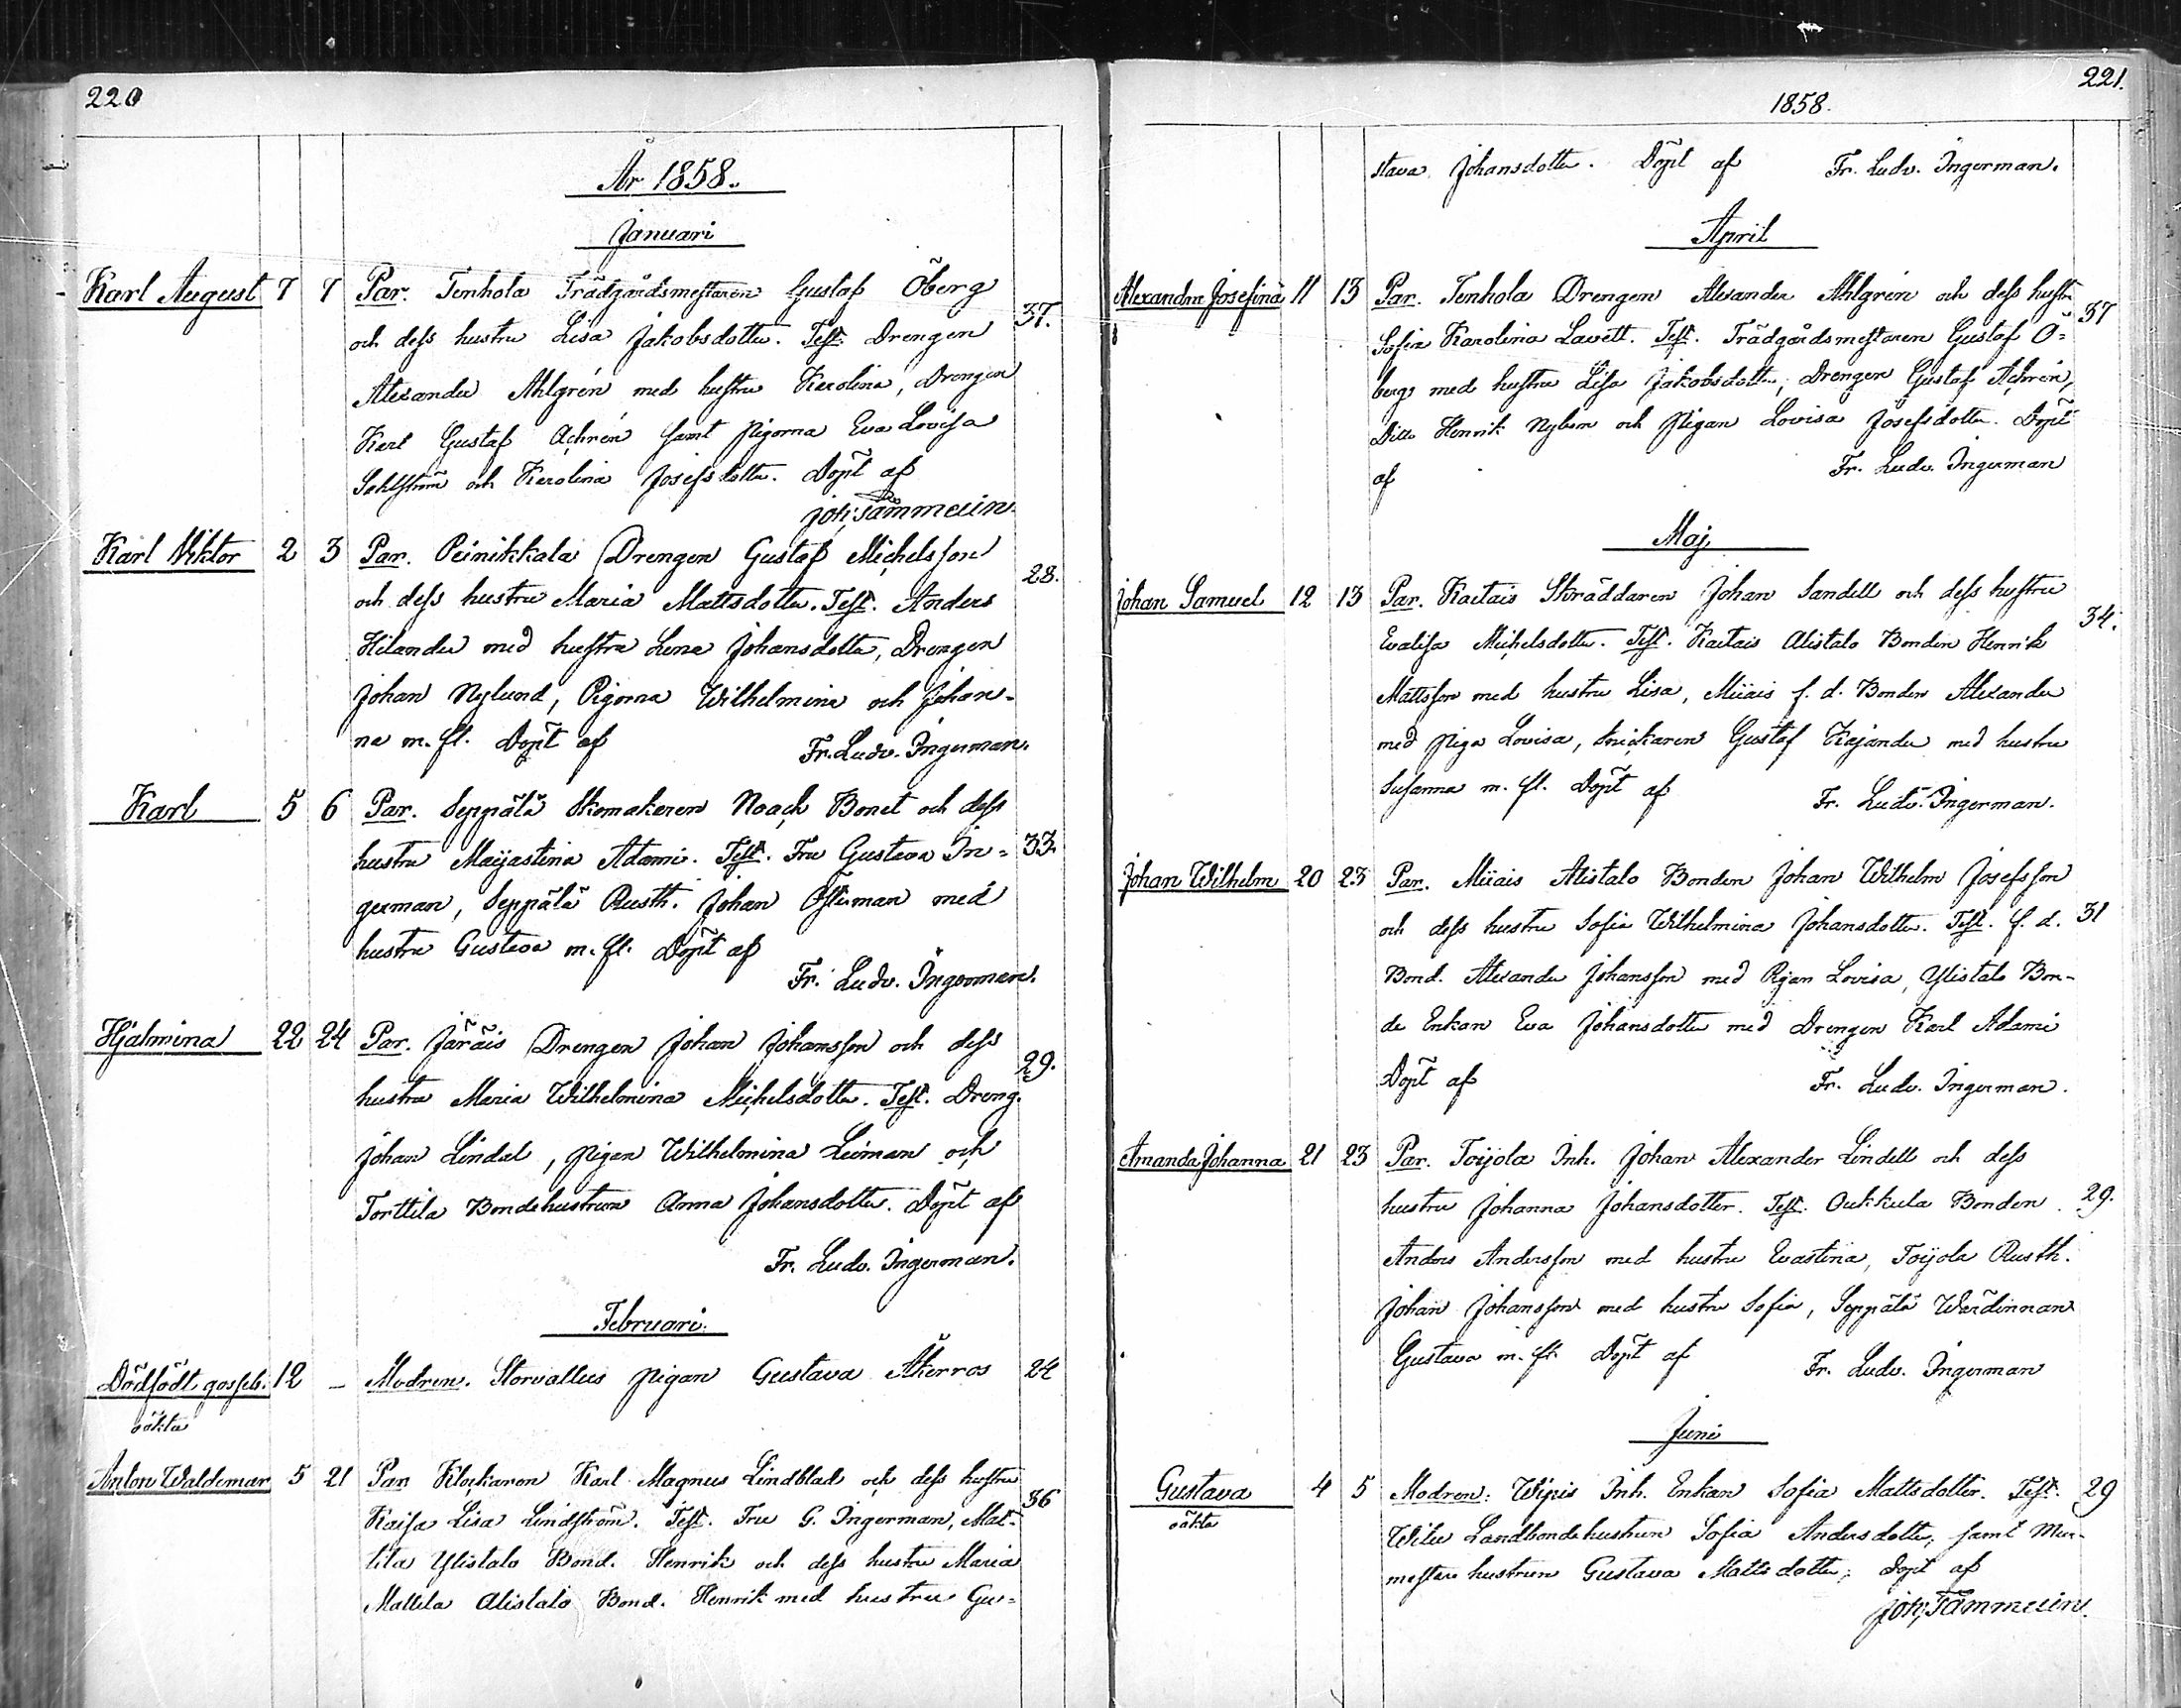 220
År 1858.
Januari
Karl August 7 7 Par. Tenhola Trädgårdsmestaren Gustaf Öberg
och dess hustru Lisa Jakobsdotter. Test. Drengen 37.
Alexander Ahlgrén med hustru Karolina, Drengen
Karl Gustaf Achrén samt pigorna Eva Lovisa
Sahlström och Karolina Josefsdotter. Döpt af
Joh: Tammelin.
Karl Viktor 2 3 Par. Peinikkala Drengen Gustaf Michelsson
och dess hustru Maria Mattsdotter. Test. Anders 28.
Hilander med hustru Lena Johansdotter, Drengen
Johan Nylund, Pigorna Wilhelmina och Johan-
na m. fl. Döpt af Fr. Ludv. Ingerman.
Karl 5 6 Par. Seppälä Skomakeren Noach Bonet och dess
hustru Maijastina Adami. Test. Fru Gustava In= 33.
german, Seppälä Rusth. Johan Österman med
hustru Gustava m. fl. Döpt af
Fr. Ludv. Ingerman.
Hjalmina 22 24 Par. Järäis Drengen Johan Johansson och dess
hustru Maria Wilhelmina Michelsdotter. Test. Dreng. 29.
Johan Lindal, pigan Wilhelmina Leiman och
Torttila Bondehustrun Anna Johansdotter. Döpt af
Fr. Ludv. Ingerman.
Februari.
Dödfödt gosseb. 12 – Modren. Storvallus pigan Gustava Åkerros 24
oäkta
Anton Waldemar 5 21 Par. Klockaren Karl Magnus Lindblad och dess hustru
Kaisa Lisa Lindström. Test. Fru G. Ingerman, Mat- 36
tila Ylistalo Bond. Henrik och dess hustru Maria
Mattila Alistalo Bond. Henrik med hustru Gu=
221.
1858.
stava Johansdotter. Döpt af Fr. Ludv. Ingerman.
April
Alexandra Josefina 11 13 Par. Tenhola Drengen Alexander Ahlgrén och dess hustru
Sofia Karolina Lavett. Test. Trädgårdsmestaren Gustaf Ö= 37
berg med hustru Lisa Jakobsdotter, Drengen Gustaf Achrén,
Ditto Henrik Nybom och Pigan Lovisa Josefsdotter. Döpt
af Fr. Ludv. Ingerman
Maj
Johan Samuel 12 13 Par. Kaitais Skräddaren Johan Sandell och dess hustru
Evalisa Michelsdotter. Test. Kaitais Alistalo Bonden Henrik 34.
Mattsson med hustru Lisa, Miiais f. d. Bonden Alexander
med piga Lovisa, snickaren Gustaf Kajander med hustru
Susanna m. fl. Döpt af Fr. Ludv. Ingerman.
Johan Wilhelm 20 23 Par. Miiais Alistalo Bonden Johan Wilhelm Josefsson
och dess hustru Sofia Wilhelmina Johansdotter. Test. f. d. 31
Bond. Alexander Johansson med Pigan Lovisa, Ylistalo Bon-
de Enkan Eva Johansdotter med Drengen Karl Adami
Döpt af Fr. Ludv. Ingerman.
Amanda Johanna 21 23 Par. Toijola Inh. Johan Alexander Lindell och dess
hustru Johanna Johansdotter. Test. Oukkula Bonden 29.
Anders Andersson med hustru Evastina, Toijola Rusth.
Johan Johansson med hustru Sofia, Seppälä Wärdinnan
Gustava m. fl. Döpt af Fr. Ludv. Ingerman
Juni
Gustava 4 5 Modren: Wipis Inh. Enkan Sofia Mattsdotter. Test. 29
oäkta
Landbondehustrun Sofia Andersdotter, samt Mur-
mestare hustrun Gustava Mattsdotter; döpt af
Joh: Tammelin.